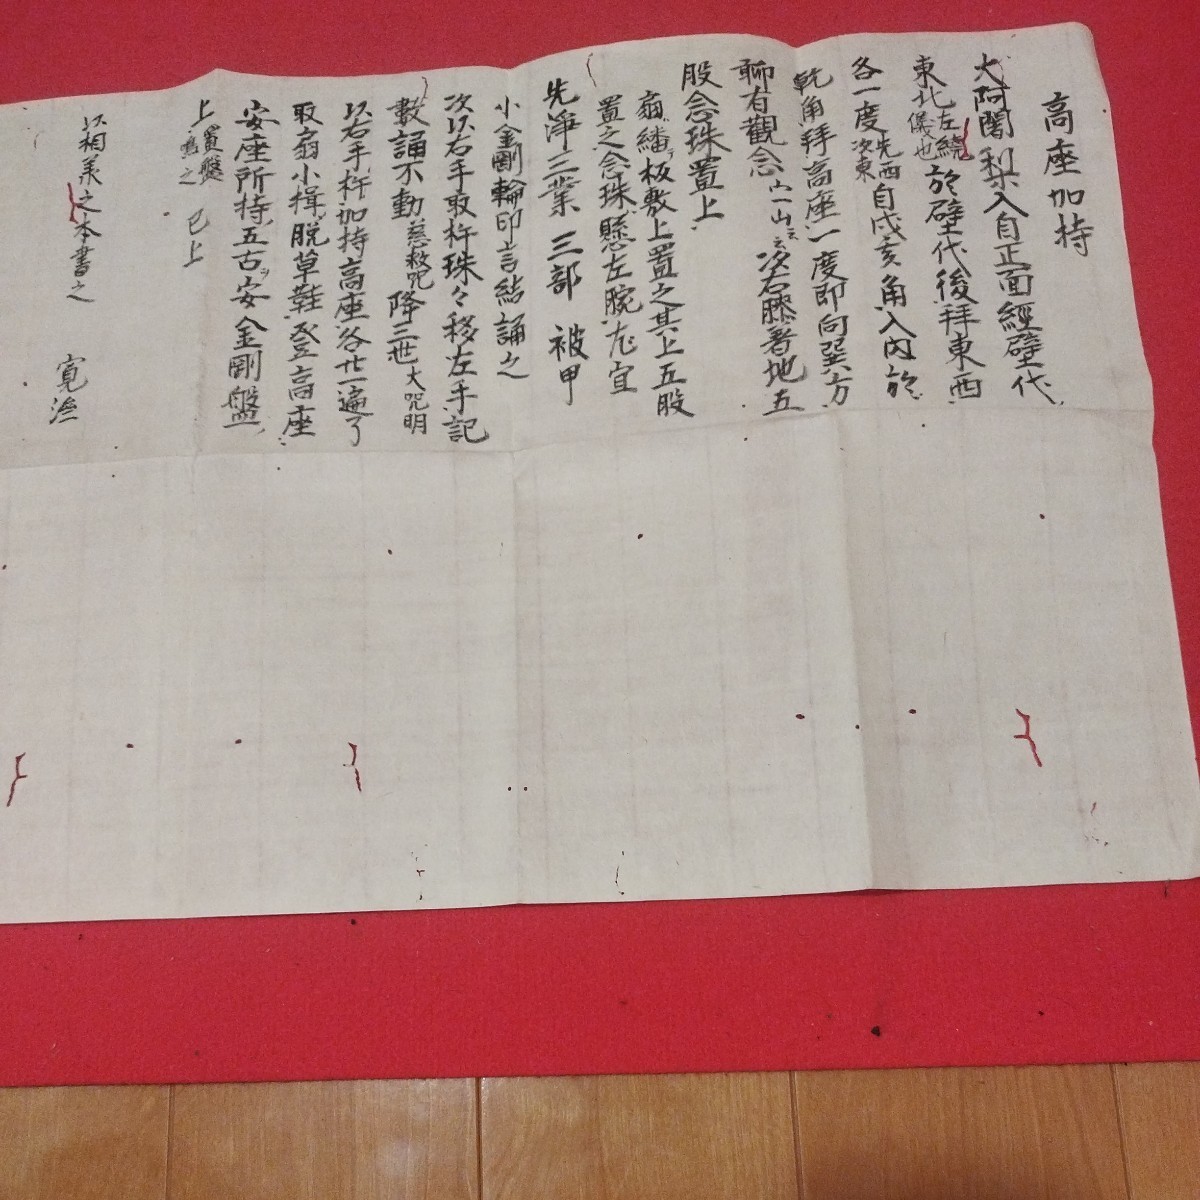 高座加持
大阿闍梨入自正面經壁代
東北左繞儀也於壁代後拜東西
各一度先西次東自戌亥角入内於
乾角拜高座一度即向巽方
聊有觀念山一山云云次右膝著地五
股念珠置上
扇繙板敷上置之其上五股
置之念珠懸左腕左宜
先淨三業 三部 被甲
小金剛輪印言結誦之
次以右手取杵珠々移左手記
數誦不動慈救呪降三世大呪明
以右手杵加持高座各廿一遍了
取扇小揖脱草鞋登高座
安座所持五古ヲ安金剛盤
上置盤鳴之 已上
以相承之本書之 寛